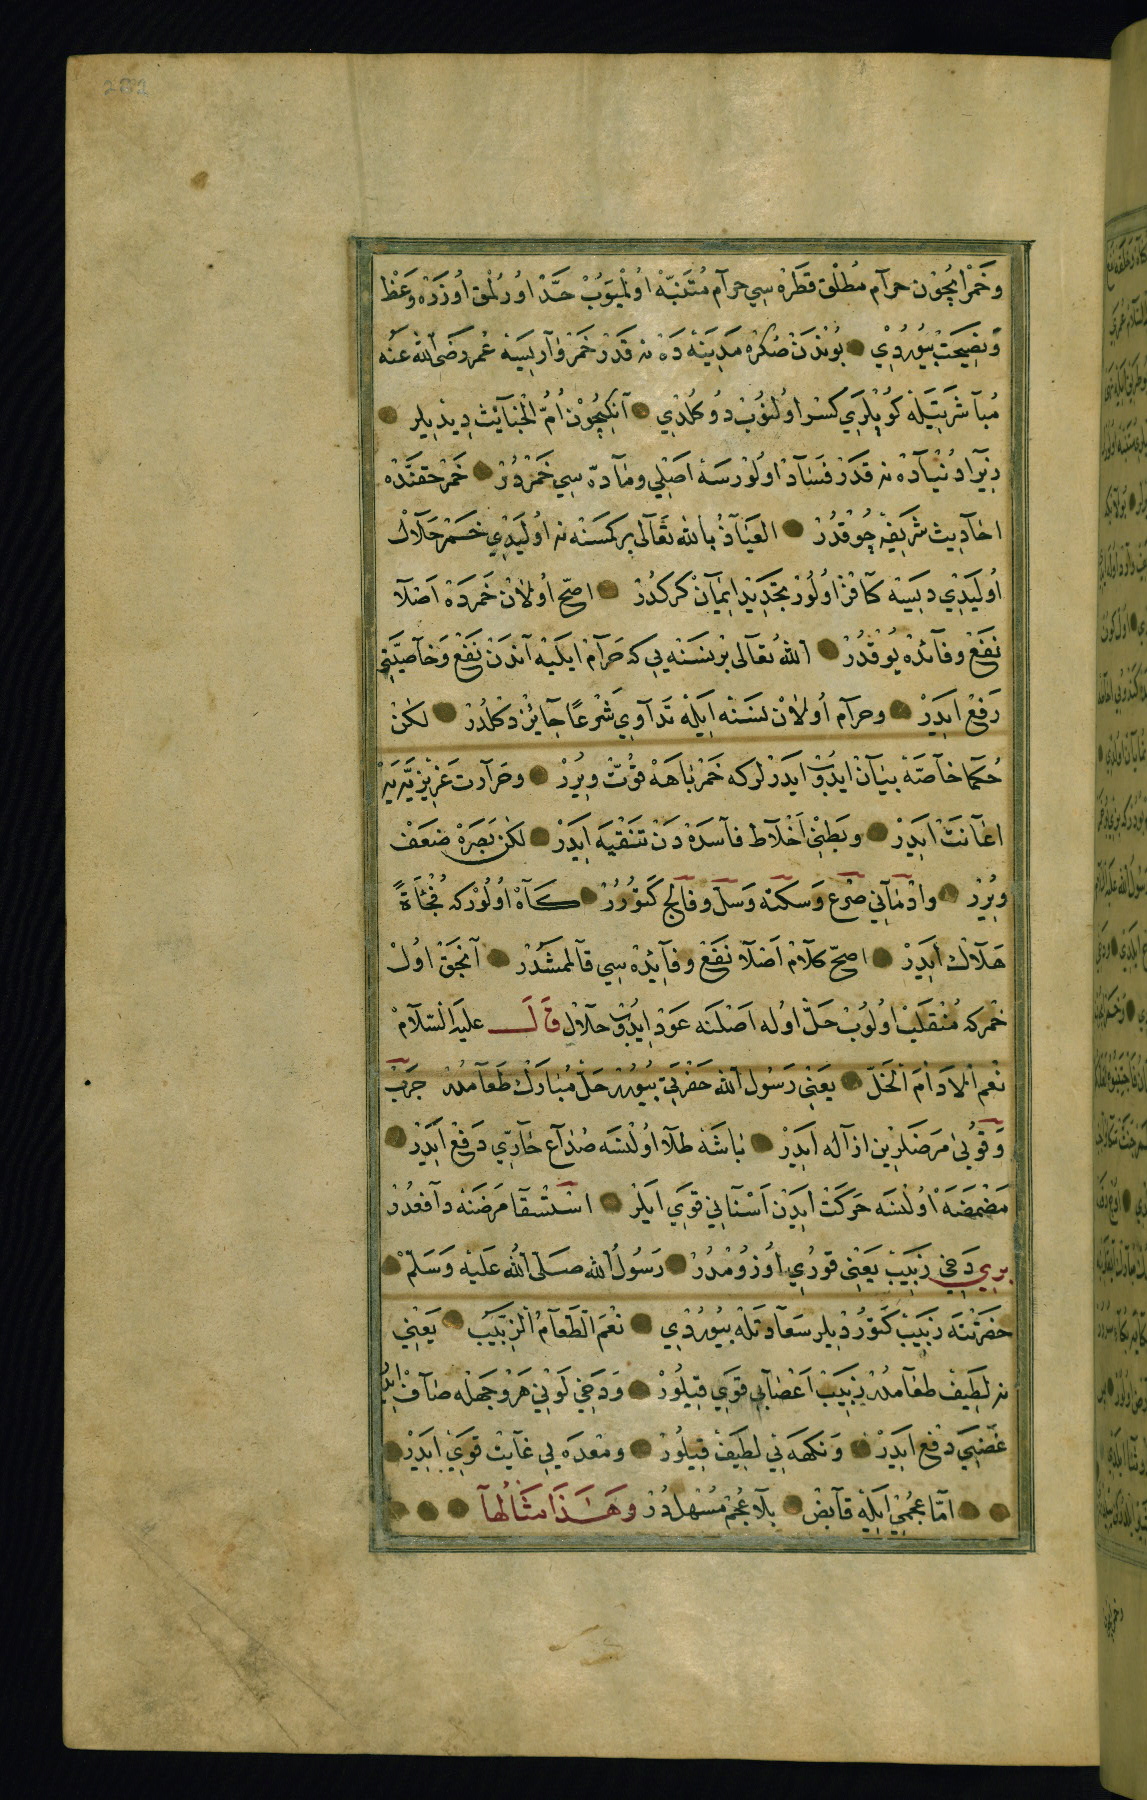 282
وخمر ایچون حرام مطلق قطره سی حرام متنبّه اولمیوب حدّ اورلمق اوزره وعظ
ونصیحت بیوردی بوندن صکره مدینه ده نه قدر خمر وار ایسه عمر رضی الله عنه
مباشرتیله کوپلری کسر اولنوب دوکلدی آنکیچون امّ الخبایث دیدیلر
زیرا دنیاده نه قدر فساد اولورسه اصلی ومادّه سی خمردر خمر حقنده
احادیث شریفه چوقدر العیاذ بالله تعالی بر کمسنه نه اولیدی خمر حلال
اولیدی دیسه کافر اولور تجدید ایمان کرکدر اصحّ اولان خمرده اصلا
نفع وفائده یوقدر الله تعالی بر نسنه یی که حرام ایلیه اندن نفع وخاصیتی
رفع ایدر وحرام اولان نسنه ایله تداوی شرعا جایز دکلدر لکن
حکما خاصّه بیان ایدوب ایدرلر که خمر باهه قوّت ویرر وحرارت غریزیّه یه
اعانت ایدر وبطنی اخلاط فاسده دن تنقیه ایدر لکن بصره ضعف
ویرر وادمانی صرع وسکته وسلّ وفالج کتورر کاه اولور که فجأة
هلاك ایدر اصحّ کلام اصلا نفع وفایده سی قالممشدر آنجق اول
خمر که منقلب اولوب خلّ اوله اصلنه عود ایدوب حلال قال علیه السّلام
نعم الادام الخلّ یعنی رسول الله حضرتی بیورر خلّ مبارك طعامدر جرب
وقوبی مرضلرین ازاله ایدر باشه طلا اولنسه صداع حارّی دفع ایدر
مضمضه اولنسه حرکت ایدن اسنانی قوی ایلر استسقا مرضنه دافعدر
بری دخی زبیب یعنی قوری اوزومدر رسول الله صلی الله علیه وسلم
حضرتنه زبیب کتوردیلر سعادتله بیوردی نعم الطّعام الزّبیب یعنی
نه لطیف طعامدر زبیب اعضایی قوی قیلور ودخی لونی هر وجهله صاف ایلر
غضبی دفع ایدر ونکهه نی لطیف قیلور ومعده یی غایت قوی ایدر
امّا عجمی ایله قابض بلا عجم مسهلدر وهذا مثالها